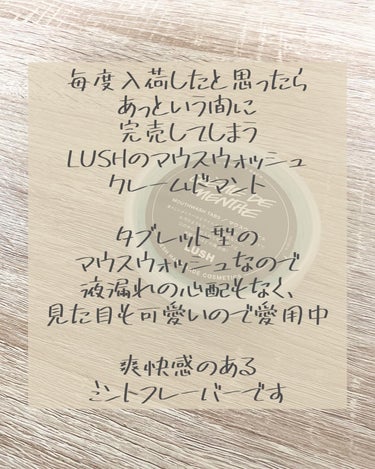 毎度入荷したと思ったら
あっという間に
完売してしまう
LUSHのマウスウォッシュ
クレームドマント
タブレット型の
マウスウォッシュなので
液漏れの心配もなく、
見た目も可愛いので愛用中
爽快感のある
ミントフレーバーです
DE
MENTHE
MOUTHWASH TABS
LUSH
COSMETICS